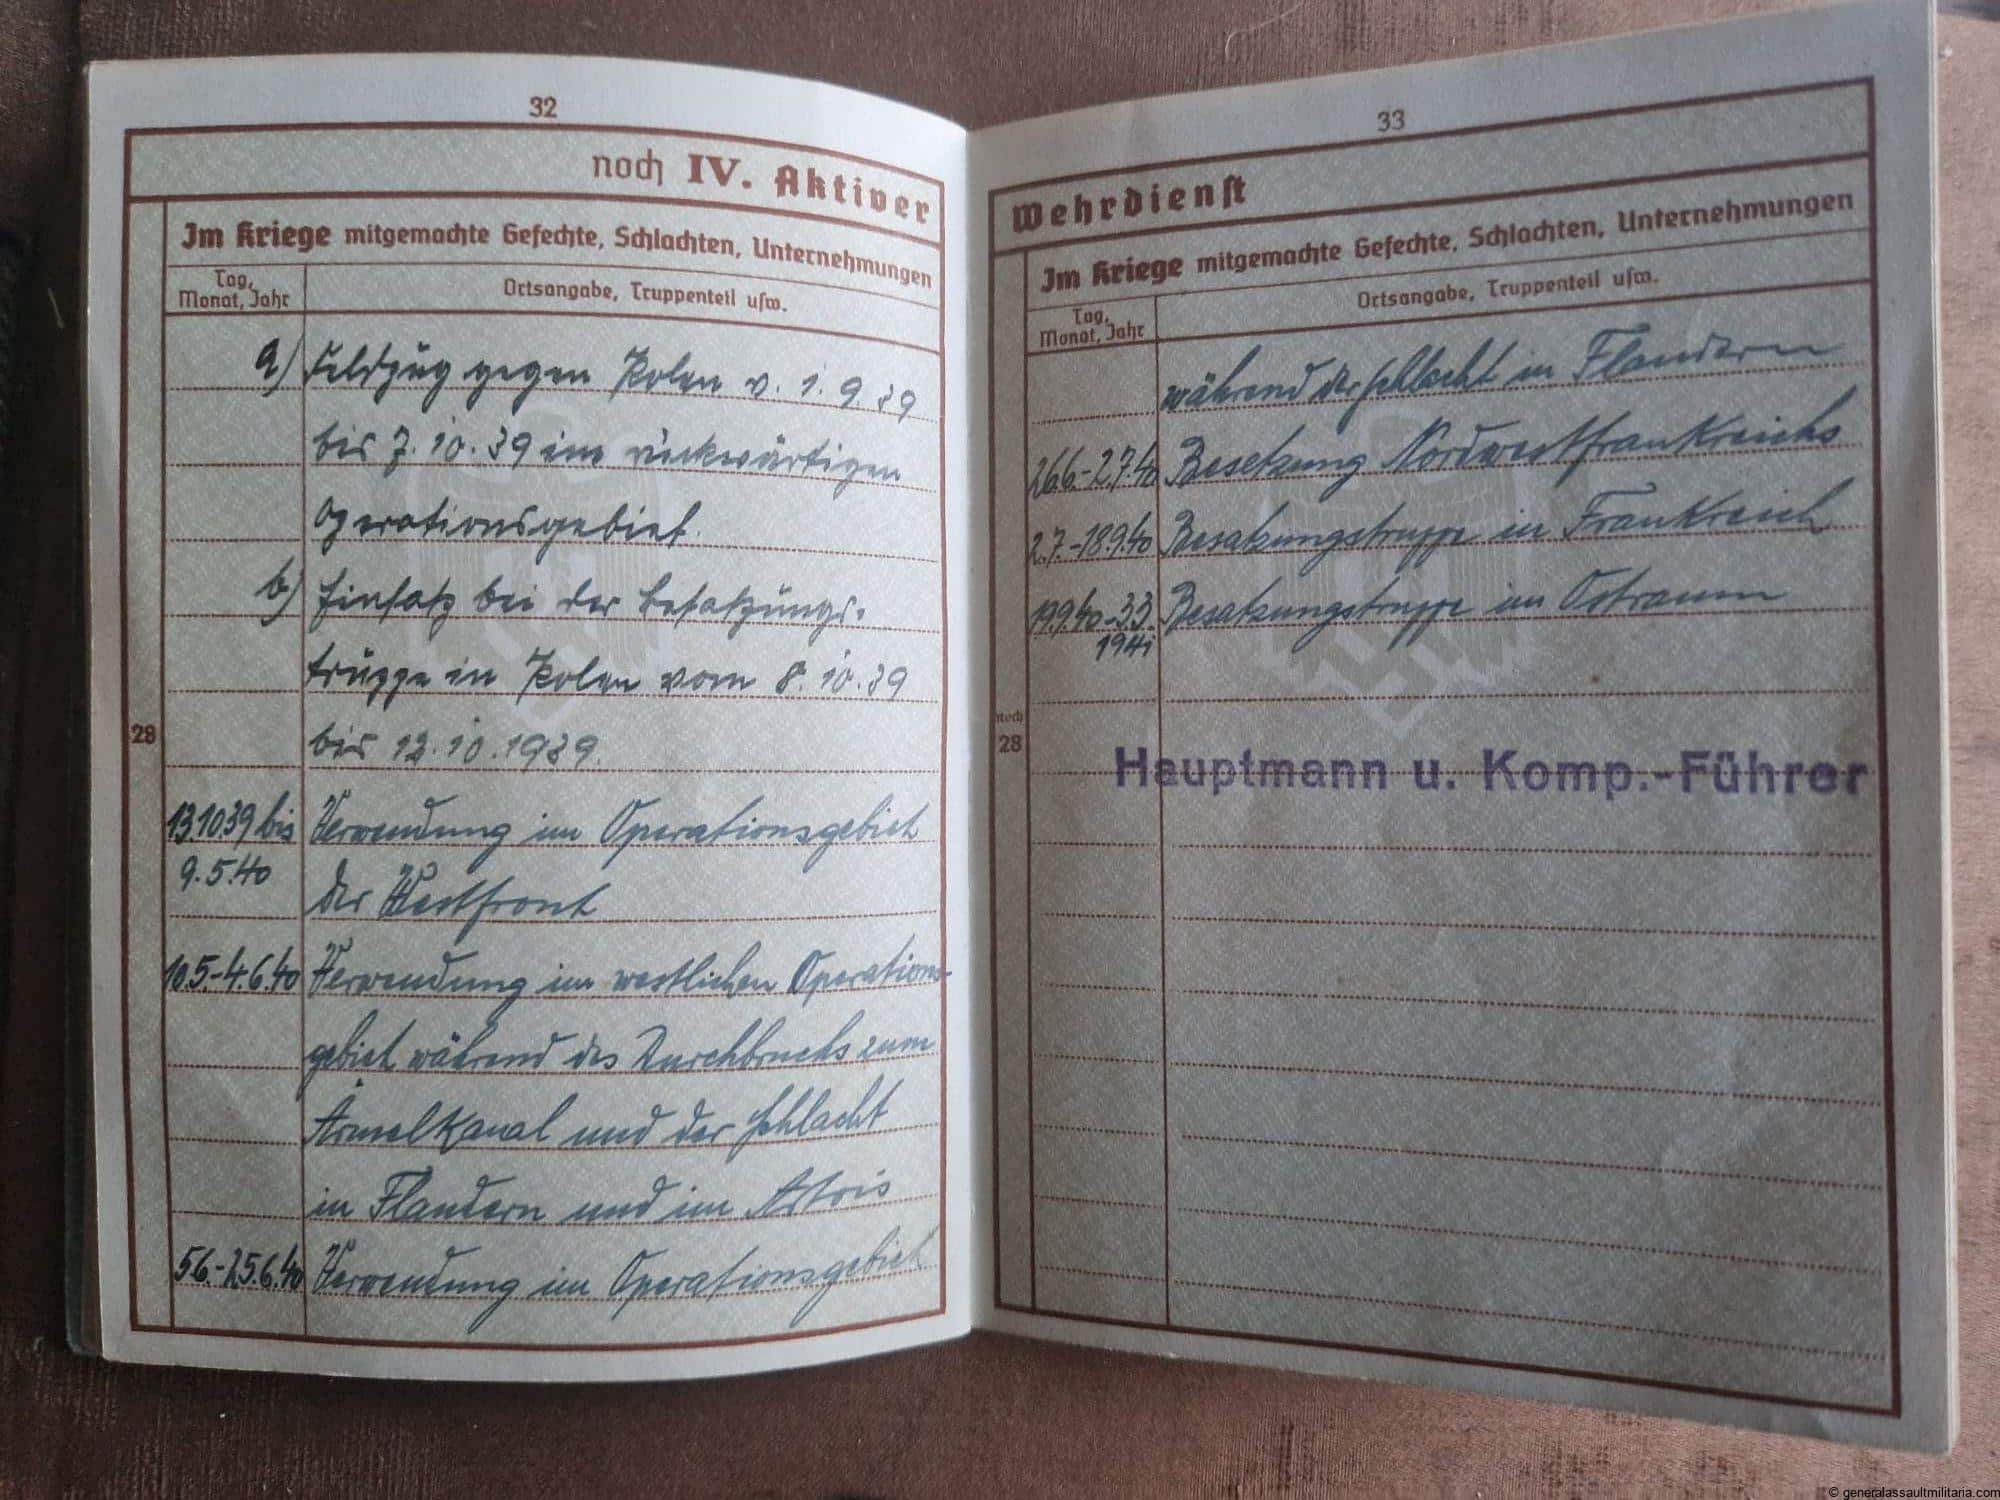 32
noch IV. Aktiver
Im Kriege mitgemachte Gefechte, Schlachten, Unternehmungen
Tag,
Monat, Jahr
Ortsangabe, Truppenteil usw.
a) Feldzug gegen Polen v. 1. 9. 39
bis 7. 10. 39 im rückwärtigen
Operationsgebiet.
b) Einsatz bei der Besatzungs-
truppe in Polen vom 8. 10. 39
28
bis 12. 10. 1939.
13.10.39 bis Verwendung im Operationsgebiet
9.5.40 der Westfront
10.5.-4.6.40 Verwendung im westlichen Operations-
gebiet während des Durchbruchs zum
Ärmelkanal und der Schlacht
in Flandern und im Artois
5.6.-25.6.40 Verwendung im Operationsgebiet
33
Wehrdienst
Im Kriege mitgemachte Gefechte, Schlachten, Unternehmungen
Tag,
Monat, Jahr
Ortsangabe, Truppenteil usw.
während der Schlacht in Flandern
26.6.-2.7.40 Besetzung Nordwestfrankreichs
2.7.-18.9.40 Besatzungstruppe in Frankreich
19.9.40-3.3. Besatzungstruppe im Ostraum
1941
noch
28
Hauptmann u. Komp.-Führer
© generalassaultmilitaria.com